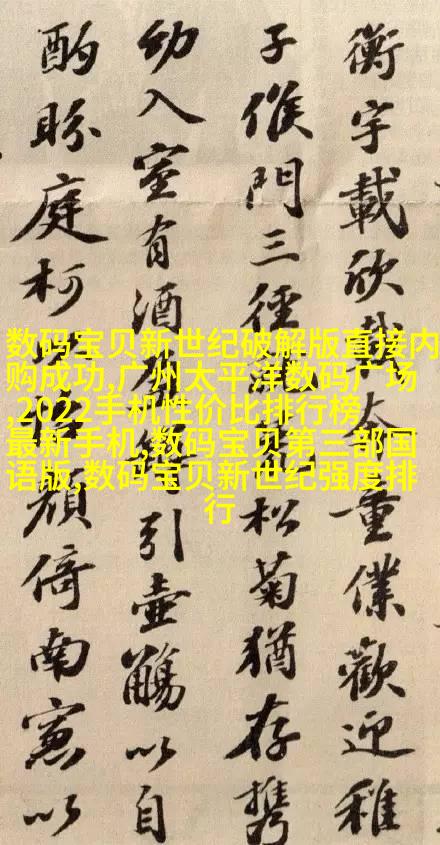 衡宇載欣載奔童僕歡迎稚
子候門三徑松菊猶存攜
幼入室有酒引壺觴以自
酌眄庭柯顏倚南窗以
数码宝贝新世纪破解版直接内
购成功,广州太平洋数码广场
,2022手机性价比排行榜
最新手机,数码宝贝第三部国
语版,数码宝贝新世纪强度排
行